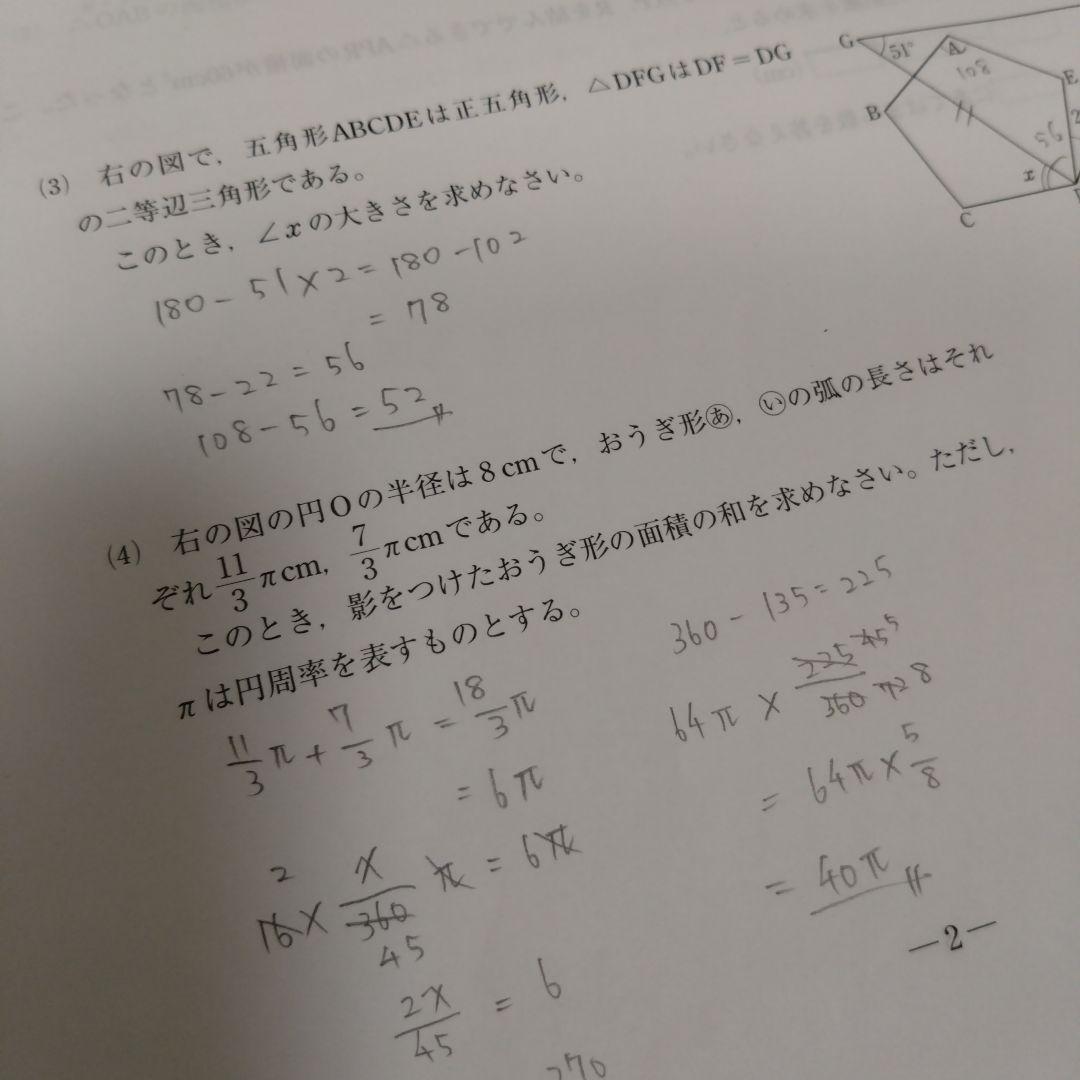 (3) 右の図で，五角形ABCDEは正五角形，△DFGはDF＝DG
の二等辺三角形である。
このとき，∠xの大きさを求めなさい。
180－51×2＝180－102
＝78
78－22＝56
108－56＝52
G
51°
A
108
E
B
56
2
x
C
(4) 右の図の円Oの半径は8cmで，おうぎ形㋐，㋑の弧の長さはそれ
ぞれ11/3πcm，7/3πcmである。
このとき，影をつけたおうぎ形の面積の和を求めなさい。ただし，
πは円周率を表すものとする。
11/3π＋7/3π＝18/3π
＝6π
2
16×x/360π＝6π
45
2x/45＝6
270
360－135＝225
64π×225/360 45 5 72 8
＝64π×5/8
＝40π
－2－